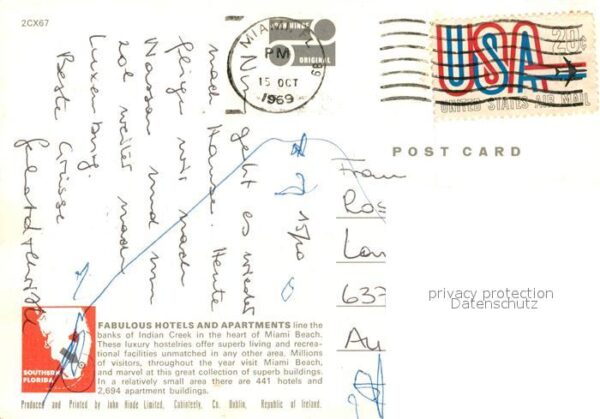 2CX67
JOHN HINDE
ORIGINAL
MIAMI, FL
PM
15 OCT
1969
USA 20c
UNITED STATES AIR MAIL
POST CARD
Nun geht es wieder
nach Hause. Heute
fliegen wir nach
Nassau und um
20h weiter nach
Luxemburg.
Beste Grüsse
15/10
Frau
Ros
Lau
637
Au
privacy protection
Datenschutz
SOUTHERN
FLORIDA
FABULOUS HOTELS AND APARTMENTS line the
banks of Indian Creek in the heart of Miami Beach.
These luxury hostelries offer superb living and recrea-
tional facilities unmatched in any other area. Millions
of visitors, throughout the year visit Miami Beach,
and marvel at this great collection of superb buildings.
In a relatively small area there are 441 hotels and
2,694 apartment buildings.
Produced and Printed by John Hinde Limited, Cabinteely, Co. Dublin, Republic of Ireland.